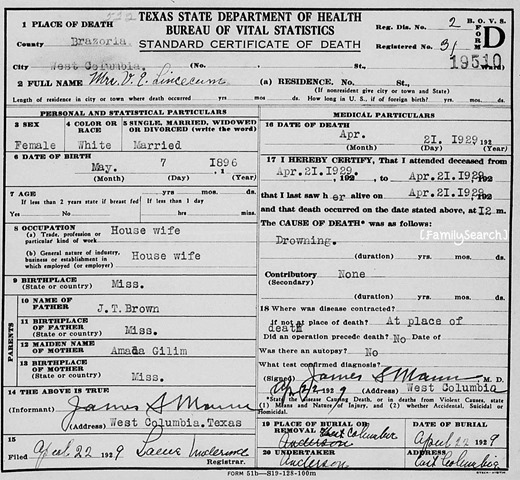 TEXAS STATE DEPARTMENT OF HEALTH
BUREAU OF VITAL STATISTICS
STANDARD CERTIFICATE OF DEATH
B. O. V. S.
FORM D
Reg. Dis. No. 2
Registered No. 31
19510
1 PLACE OF DEATH
County Brazoria.
City West Columbia. (No. St., Ward)
2 FULL NAME Mrs. V. E. Lincecum (a) RESIDENCE. No. St.,
(If nonresident give city or town and State)
Length of residence in city or town where death occurred yrs. mos. ds. How long in U. S., if of foreign birth? yrs. mos. ds.
PERSONAL AND STATISTICAL PARTICULARS
3 SEX
Female
4 COLOR OR RACE
White
5 SINGLE, MARRIED, WIDOWED OR DIVORCED (write the word)
Married
6 DATE OF BIRTH
May. 7 1896
(Month) (Day) (Year)
7 AGE
If less than 2 years state if breast fed
If less than 1 day
Yes No hrs. mins.
8 OCCUPATION
(a) Trade, profession or particular kind of work.
House wife
(b) General nature of industry, business or establishment in which employed (or employer)
House wife
9 BIRTHPLACE
(State or country) Miss.
PARENTS
10 NAME OF FATHER
J.T.Brown
11 BIRTHPLACE OF FATHER
(State or country) Miss.
12 MAIDEN NAME OF MOTHER
Amada Gilim
13 BIRTHPLACE OF MOTHER
(State or country) Miss.
14 THE ABOVE IS TRUE
(Informant) James S Mann
(Address) West Columbia.Texas
15
Filed April 22 1929
Registrar.
MEDICAL PARTICULARS
16 DATE OF DEATH
Apr. 21. 1929. 192
(Month) (Day) (Year)
17 I HEREBY CERTIFY, That I attended deceased from
Apr.21.1929. 192 to Apr.21.1929. 192
that I last saw her alive on Apr.21.1929. 192
and that death occurred on the date stated above, at 12 m.
The CAUSE OF DEATH* was as follows:
[FamilySearch]
Drowning.
(duration) yrs. mos. ds.
Contributory None
(Secondary)
(duration) yrs. mos. ds.
18 Where was disease contracted?
If not at place of death? At place of
death
Did an operation precede death? No Date of
Was there an autopsy? No
What test confirmed diagnosis?
(Signed) James S Mann M. D.
1929 (Address) West Columbia
*State the Disease Causing Death, or in deaths from Violent Causes, state (1) Means and Nature of Injury, and (2) whether Accidental, Suicidal or Homicidal.
19 PLACE OF BURIAL OR REMOVAL
East Columbia
DATE OF BURIAL
April 22 1929
20 UNDERTAKER
Anderson
ADDRESS
East Columbia
FORM 51b—S19-128-100m